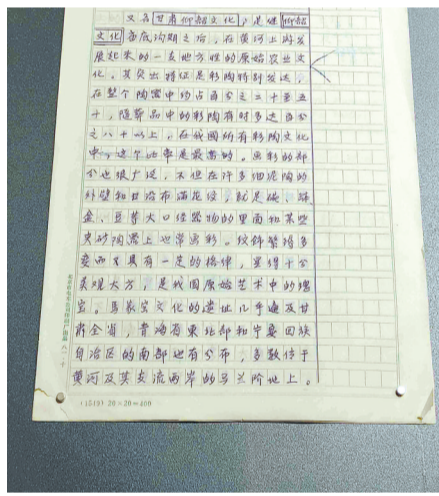 又名甘肃仰韶文化，是继仰韶
文化庙底沟期之后，在黄河上游发
展起来的一支地方性的原始农业文
化。其突出特征是彩陶特别发达，
在整个陶器中约占百分之二十至五
十，随葬品中的彩陶有时多达百分
之八十以上，在我国所有彩陶文化
中，这个比率是最高的。画彩的部
分也很广泛，不但在许多细泥陶的
外壁和口沿布满花纹，就是碗、
盆、豆等大口径器物的里面和某些
夹砂陶器上也常画彩。纹饰繁缛多
变而又具有一定的格律，显得十分
美观大方，是我国原始艺术中的瑰
宝。马家窑文化的遗址几乎遍及甘
肃全省，青海省东北部和宁夏回族
自治区的南部也有分布，多数位于
黄河及其支流两岸的马兰阶地上。
(1519) 20×20=400